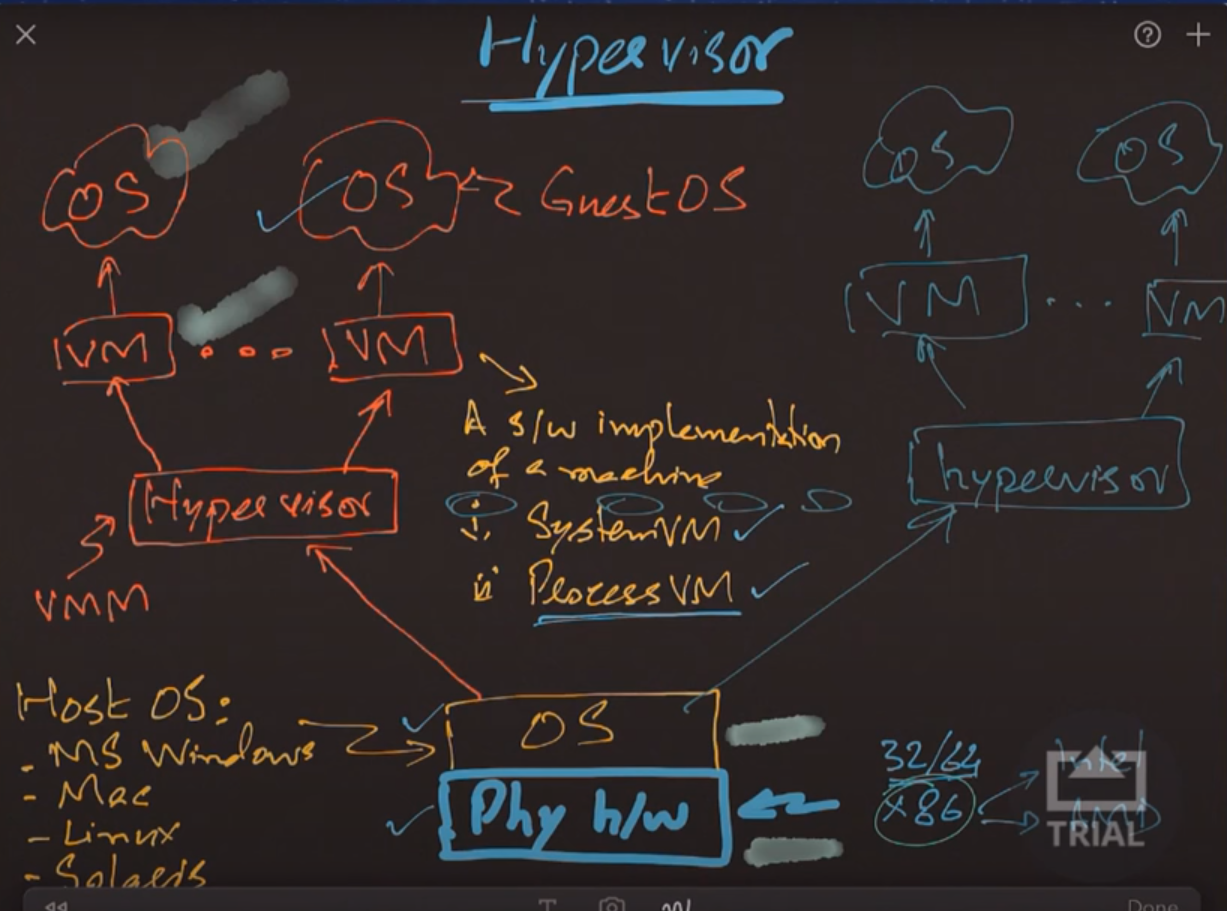 Hypervisor
OS
OS
Guest OS
OS
OS
VM
VM
VM
VM
A s/w implementation
of a machine
Hypervisor
hypervisor
i. System VM
ii Process VM
VMM
Host OS:
- MS Windows
- Mac
- Linux
- Solaris
OS
Phy h/w
32/64
x86
Intel
AMD
TRIAL
T
Done